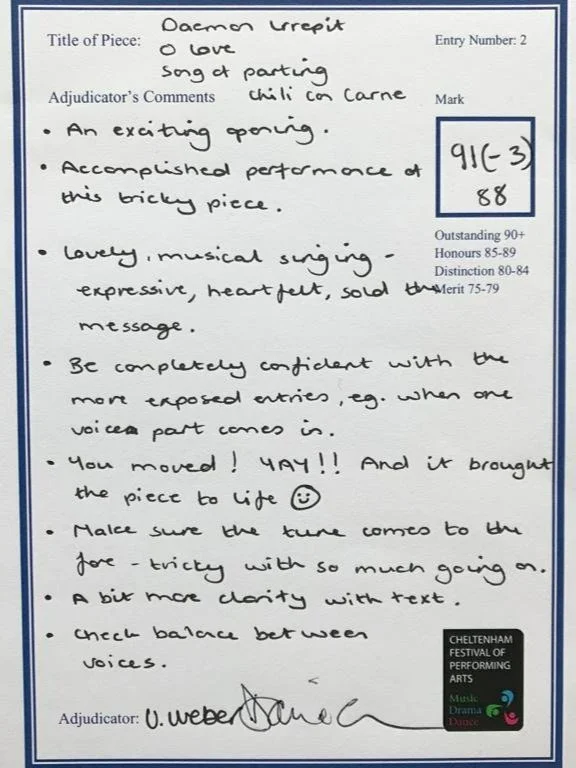 Title of Piece: Daemon Irrepit
Entry Number: 2
O Love
Song of parting
Chili con Carne
Adjudicator's Comments
Mark
91(-3)
88
Outstanding 90+
Honours 85-89
Distinction 80-84
Merit 75-79
• An exciting opening.
• Accomplished performance of
this tricky piece.
• Lovely, musical singing -
expressive, heartfelt, sold the
message.
• Be completely confident with the
more exposed entries, eg. when one
voice part comes in.
• You moved! YAY!! And it brought
the piece to life ☺
• Make sure the tune comes to the
fore - tricky with so much going on.
• A bit more clarity with text.
• Check balance between
voices.
Adjudicator: U. Weber
CHELTENHAM
FESTIVAL OF
PERFORMING
ARTS
Music
Drama
Dance